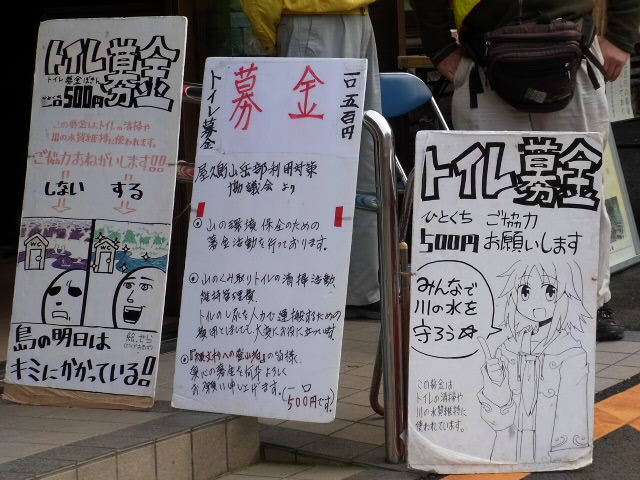 トイレ募金
トイレ募金ぼきん
ひと口500円
この募金はトイレの清掃や
川の水質維持に使われます。
ご協力おねがいします!!
しない する
WC
WC
島の明日は
キミにかかっている!!
トイレ募金
募金
一口五百円
屋久島山岳部利用対策
協議会より
山の環境保全のための
募金活動を行っております。
山のくみ取りトイレの清掃活動
維持管理
トイレの し尿を人力で運搬するための
費用としましても大変お役に立っています。
の皆様、
お願い申し上げます。(一口
500円です。)
トイレ募金
ひとくち ご協力
500円お願いします
みんなで
川の水を
守ろう☆
この募金は
トイレの清掃や
川の水質維持に
使われています。